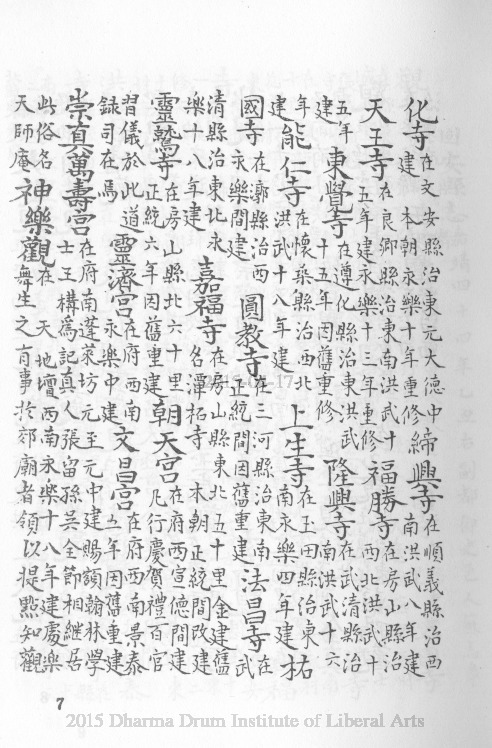 化寺在文安縣治東元大德中建 本朝永樂十年重修締興寺在順義縣治西南洪武八年建
天王寺在良鄉縣治東南洪武十五年建永樂十三年重修福勝寺在房山縣治西北洪武十
五年建東覺寺在遵化縣治東洪武十五年因舊重修隆興寺在武清縣治南洪武十六
年建能仁寺在懷柔縣治西北洪武十八年建上生寺在玉田縣治東南永樂四年建祐
國寺在漷縣治西永樂間建圓教寺在三河縣治東南正統間因舊重建法昌寺在武
清縣治東北永樂十八年建嘉福寺在房山縣東北五十里金建舊名潭柘寺 本朝正統間改建
靈鷲寺在房山縣北六十里正統六年因舊重建朝天宮在府西宣德間建凡行慶賀禮百官
習儀於此道錄司在焉靈濟宮在府西南永樂中建文昌宮在府西南景泰五年因舊重建
崇真萬壽宮在府南蓬萊坊元至元中建賜額翰林學士王構為記真人張留孫吳全節相繼居
此俗名天師庵神樂觀在 天地壇西南永樂十八年建處樂舞生之有事於郊廟者領以提點知觀
7
2015 Dharma Drum Institute of Liberal Arts